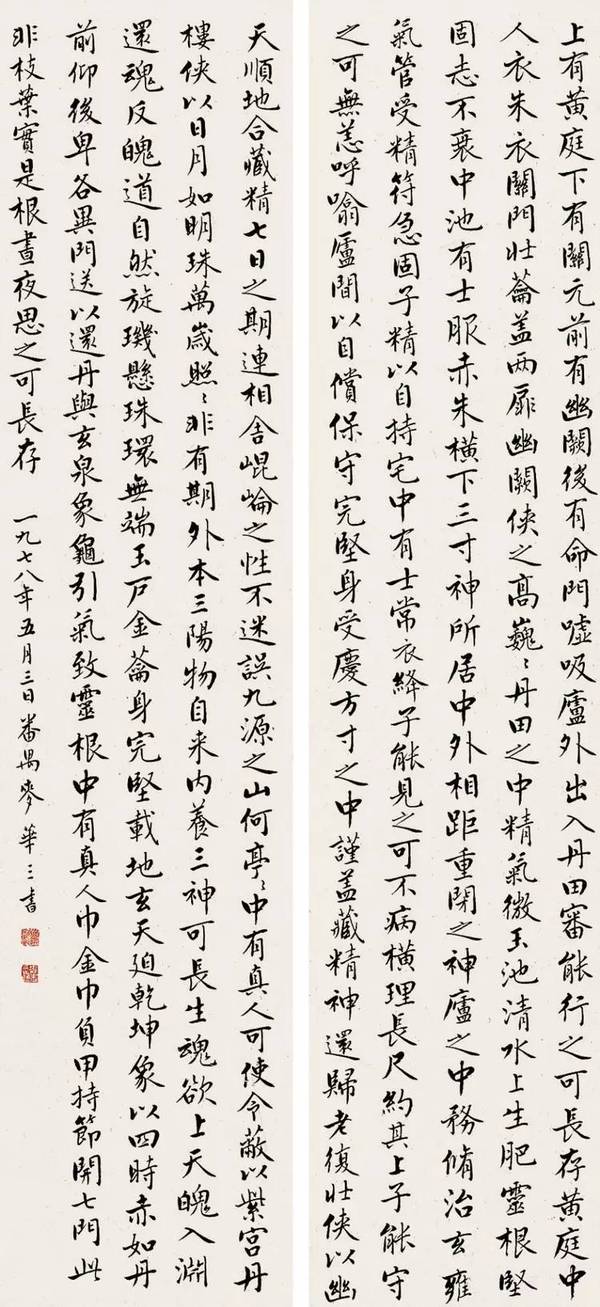 上有黃庭下有關元前有幽闕後有命門噓吸廬外出入丹田審能行之可長存黃庭中
人衣朱衣關門壯蘥盖兩扉幽闕俠之高巍〻丹田之中精氣微玉池清水上生肥靈根堅
固志不衰中池有士服赤朱橫下三寸神所居中外相距重閉之神廬之中務脩治玄雍
氣管受精符急固子精以自持宅中有士常衣絳子能見之可不病橫理長尺約其上子能守
之可無恙呼噏廬間以自償保守完堅身受慶方寸之中謹盖藏精神還歸老復壯俠以幽
天順地合藏精七日之期連相舍崐崘之性不迷誤九源之山何亭〻中有真人可使令蔽以紫宮丹
樓俠以日月如明珠萬歲照〻非有期外本三陽物自来內養三神可長生魂欲上天魄入淵
還魂反魄道自然旋璣懸珠環無端玉戶金蘥身完堅載地玄天迫乾坤象以四時赤如丹
前仰後卑各異門送以還丹與玄泉象龜引氣致靈根中有真人巾金巾負甲持節開七門此
非枝葉實是根晝夜思之可長存 一九七八年五月三日番禺麥華三書